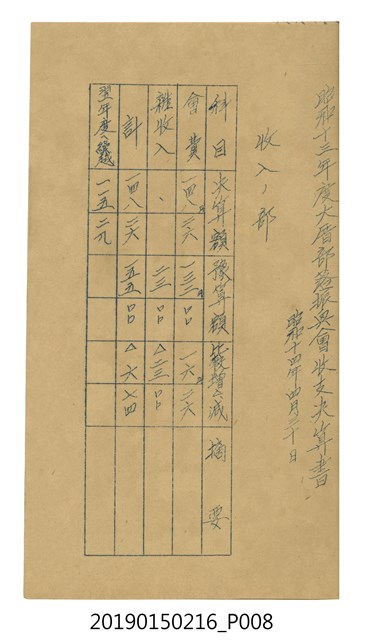 昭和十三年度大厝部落振興會收支決算書
昭和十四年四月三十日
收入ノ部
科目 決算額 豫算額 比較增△減 摘要
會費 一四八 二六 一三二 口口 一六 二六
雜收入 、 二三 口口 △二三 口口
計 一四八 二六 一五五 口口 △六 七四
翌年度ヘ繰越 一一五 二九
20190150216_P008